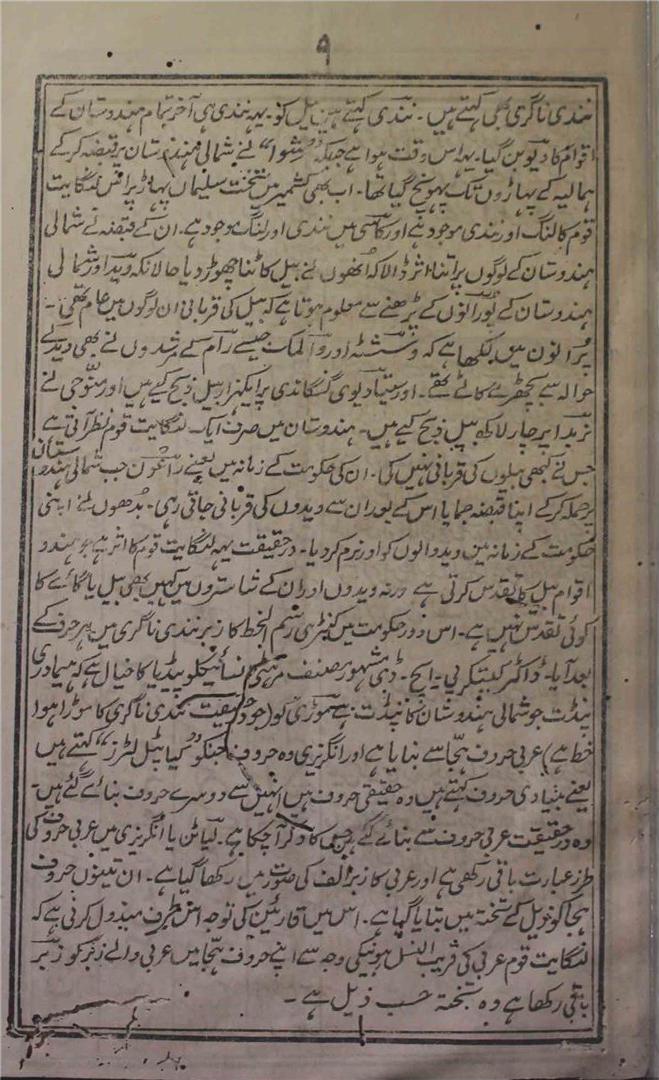 ۹
نندی ناگری بھی کہتے ہیں۔ نندی کہتے ہین بیل کو۔ یہہ نندی ہی آخر تمام ہندوستان کے
اقوام کا دیو بن گیا۔ یہ اس وقت ہوا ہے جبکہ "شوا" نے شمالی ہندوستان پر قبضہ کر کے
ہمالیہ کے پہاڑوں تک پہونچ گیا تھا۔ اب بھی کشمیر میں تخت سلیماں پہاڑ پر لنگایت
قوم کا لنگ اور نندی موجود ہے اور کاسی میں نندی اور لنگ موجود ہے۔ ان کے قبضہ نے شمالی
ہندوستان کے لوگوں پر اتنا اثر ڈالا کہ انھوں نے بیل کا ٹنا چھوڑ دیا حالانکہ وید اور شمالی
ہندوستان کے پورانوں کے پڑھنے سے معلوم ہوتا ہے کہ بیل کی قربانی ان لوگوں میں عام تھی۔
پرانون میں لکھا ہے کہ وسشٹہ اور والمک جیسے رام کے مرشدوں نے بھی وید کے
حوالہ سے بچھڑے کاٹے تھے۔ اور دیوی گنگا ندی پر ایکہزار بیل ذبح کیے ہیں اور منوجی نے
نربدا پر چار لاکھ بیل ذبح کیے ہیں۔ ہندوستان میں صرف ایک لنگایت قوم نظر آتی ہے
جس نے کبھی بیلوں کی قربانی نہیں کی۔ ان کی حکومت کے زمانہ میں یعنے راعون جب شمالی ہندوستان
پر حملہ کر کے اپنا قبضہ جمایا اس کے بعد ان سے ویدوں کی قربانی جاتی رہی۔ بدھوں نے اپنی
حکومت کے زمانہ مین وید والوں کو اور نرم کر دیا۔ درحقیقت یہہ لنگایت قوم کا اثر ہے جو ہندو
اقوام بیل کا تقدس کرتی ہے ورنہ ویدوں اور ان کے شاستروں میں کہیں بھی بیل یا گائے کا
کوئی تقدس نہیں ہے۔ اس دور حکومت میں کنڑی رسم الخط کا زبر نندی ناگری میں ہر حرف کے
بعد آیا۔ ڈاکٹر کیتکر پی۔ ایچ۔ ڈی مشہور مصنف مرہٹی انسائیکلو پیڈیا کا خیال ہے کہ ہیمادری
پنڈت جو شمالی ہندوشان کا پنڈت ہے موڑی کو (جو درحقیقت نندی ناگری کا موڑا ہوا
خط ہے) عربی حروف ہجا سے بنایا ہے اور انگریزی وہ حروف جنکو "کیاپٹل لٹرز" کہتے ہیں
یعنے بنیادی حروف کہتے ہیں وہ حقیقی حروف ہیں انہیں سے دوسرے حروف بنائے گئے ہیں۔
وہ درحقیقت عربی حروف سے بنائے گئے ہیں جس کا ذکر آچکا ہے۔ لیاٹن یا انگریزی میں عربی حروف کی
طرز عبارت باقی رکھی ہے اور عربی کا زبر الف کی صورت میں رکھا گیا ہے۔ ان تینوں حروف
ہجا کو ذیل کے تختہ میں بتایا گیا ہے۔ اس میں قارئین کی توجہ اس طرف مبذول کرنی ہے کہ
لنگایت قوم عربی کی قریب النسل ہونیکی وجہ سے اپنے حروف ہجا میں عربی والے زبر کو زبر
باقی رکھا ہے وہ تختہ حسب ذیل ہے۔